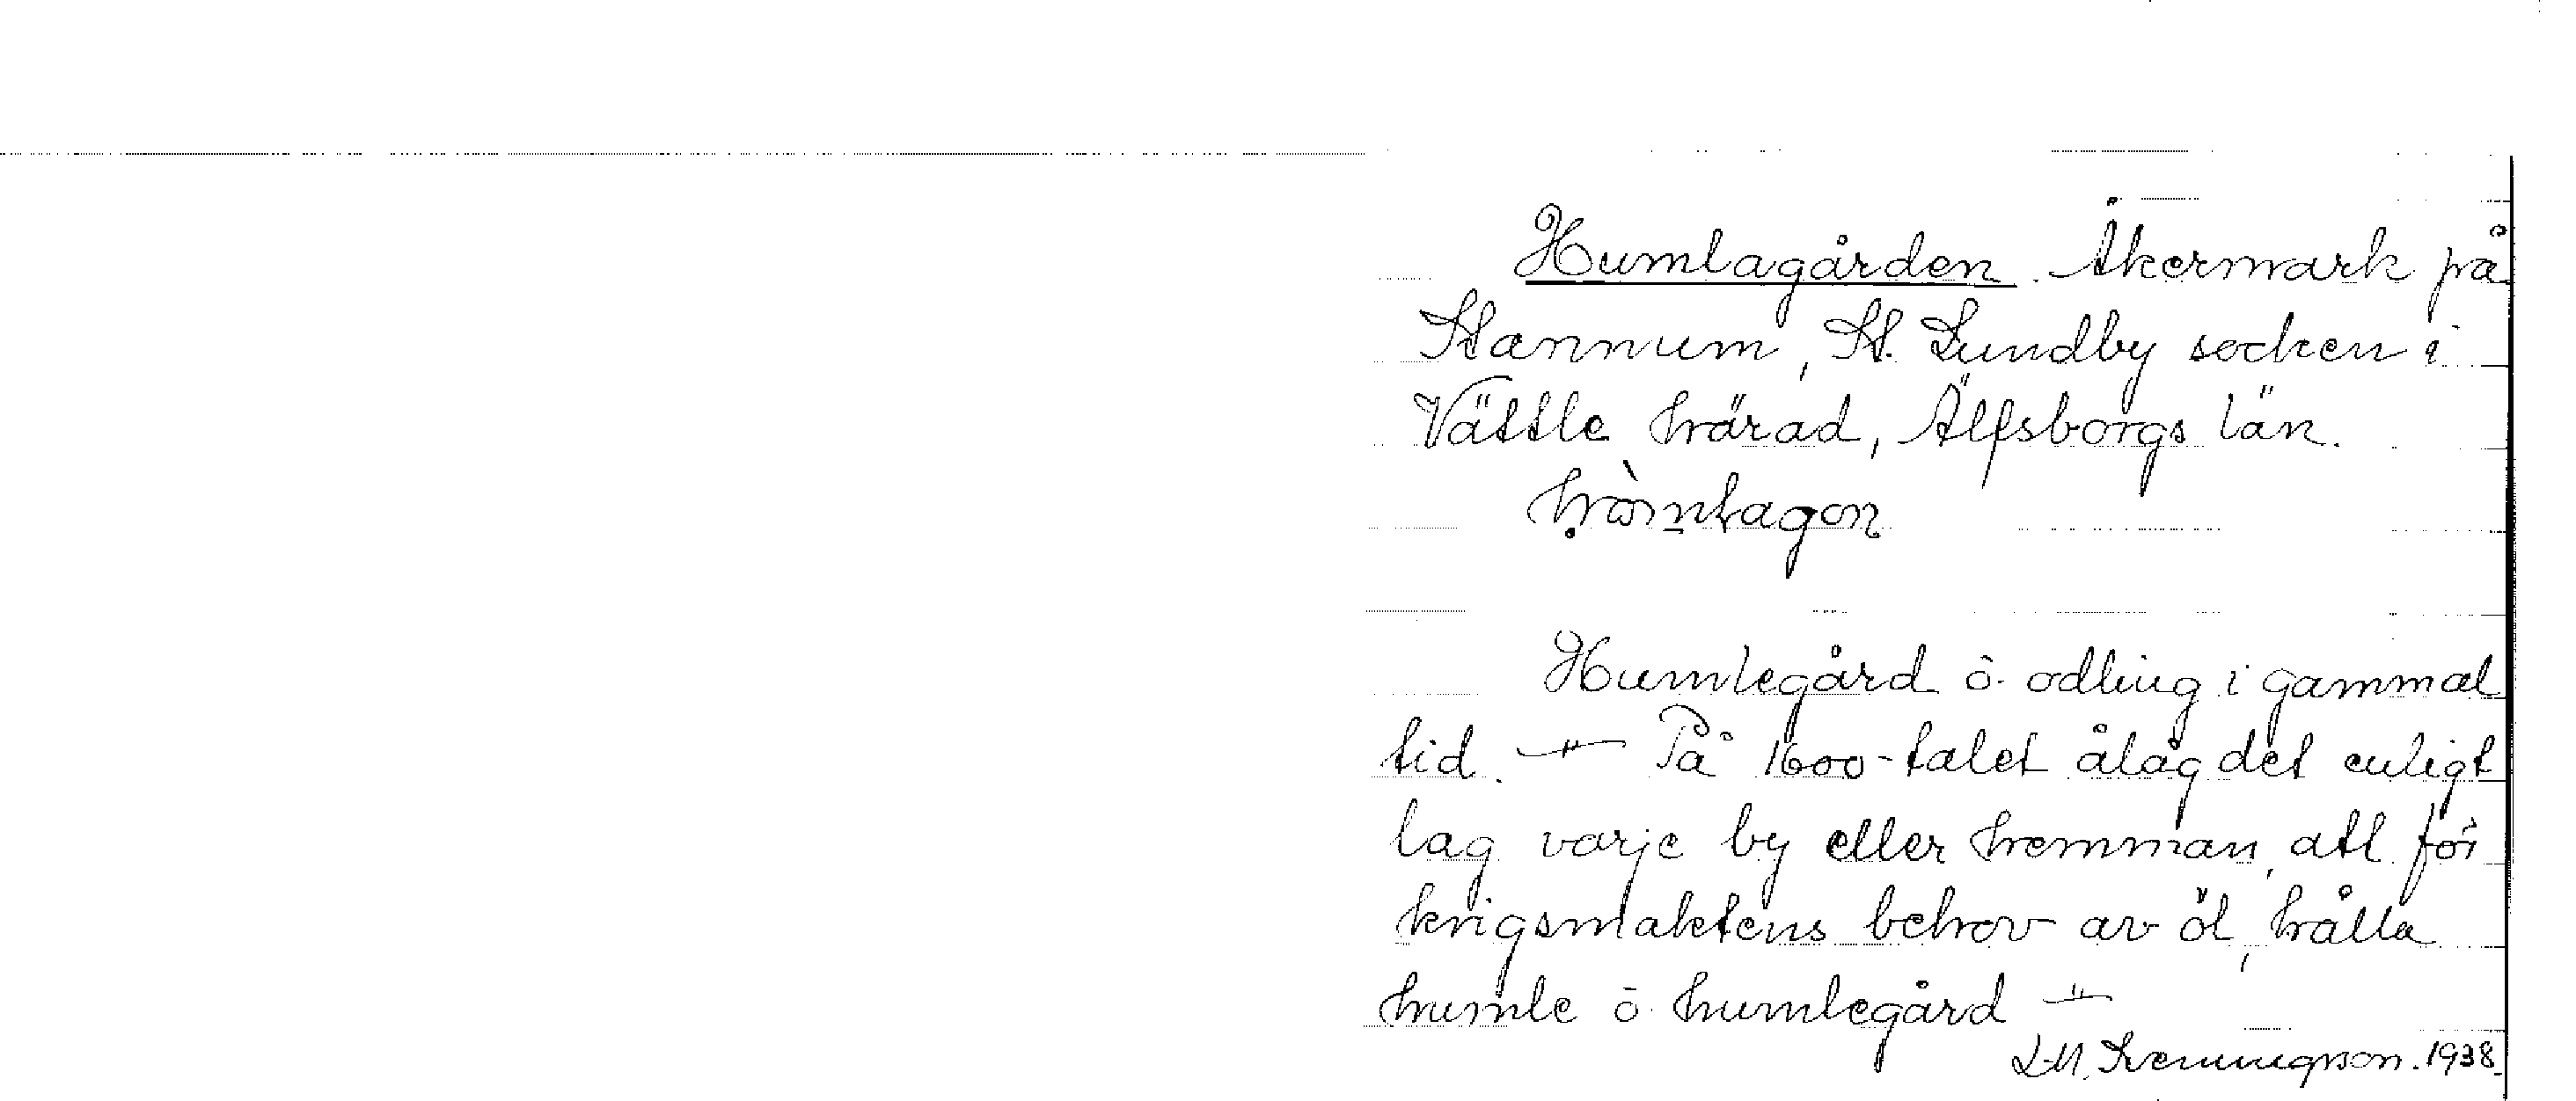 Humlagården. Åkermark på
Stannum, St. Lundby socken i
Vättle härad, Älfsborgs län.
Humlegård o. odling i gammal
tid. — På 1600-talet ålåg det enligt
lag varje by eller hemman, att för
krigsmaktens behov av öl, hålla
humle o. humlegård —
1938.